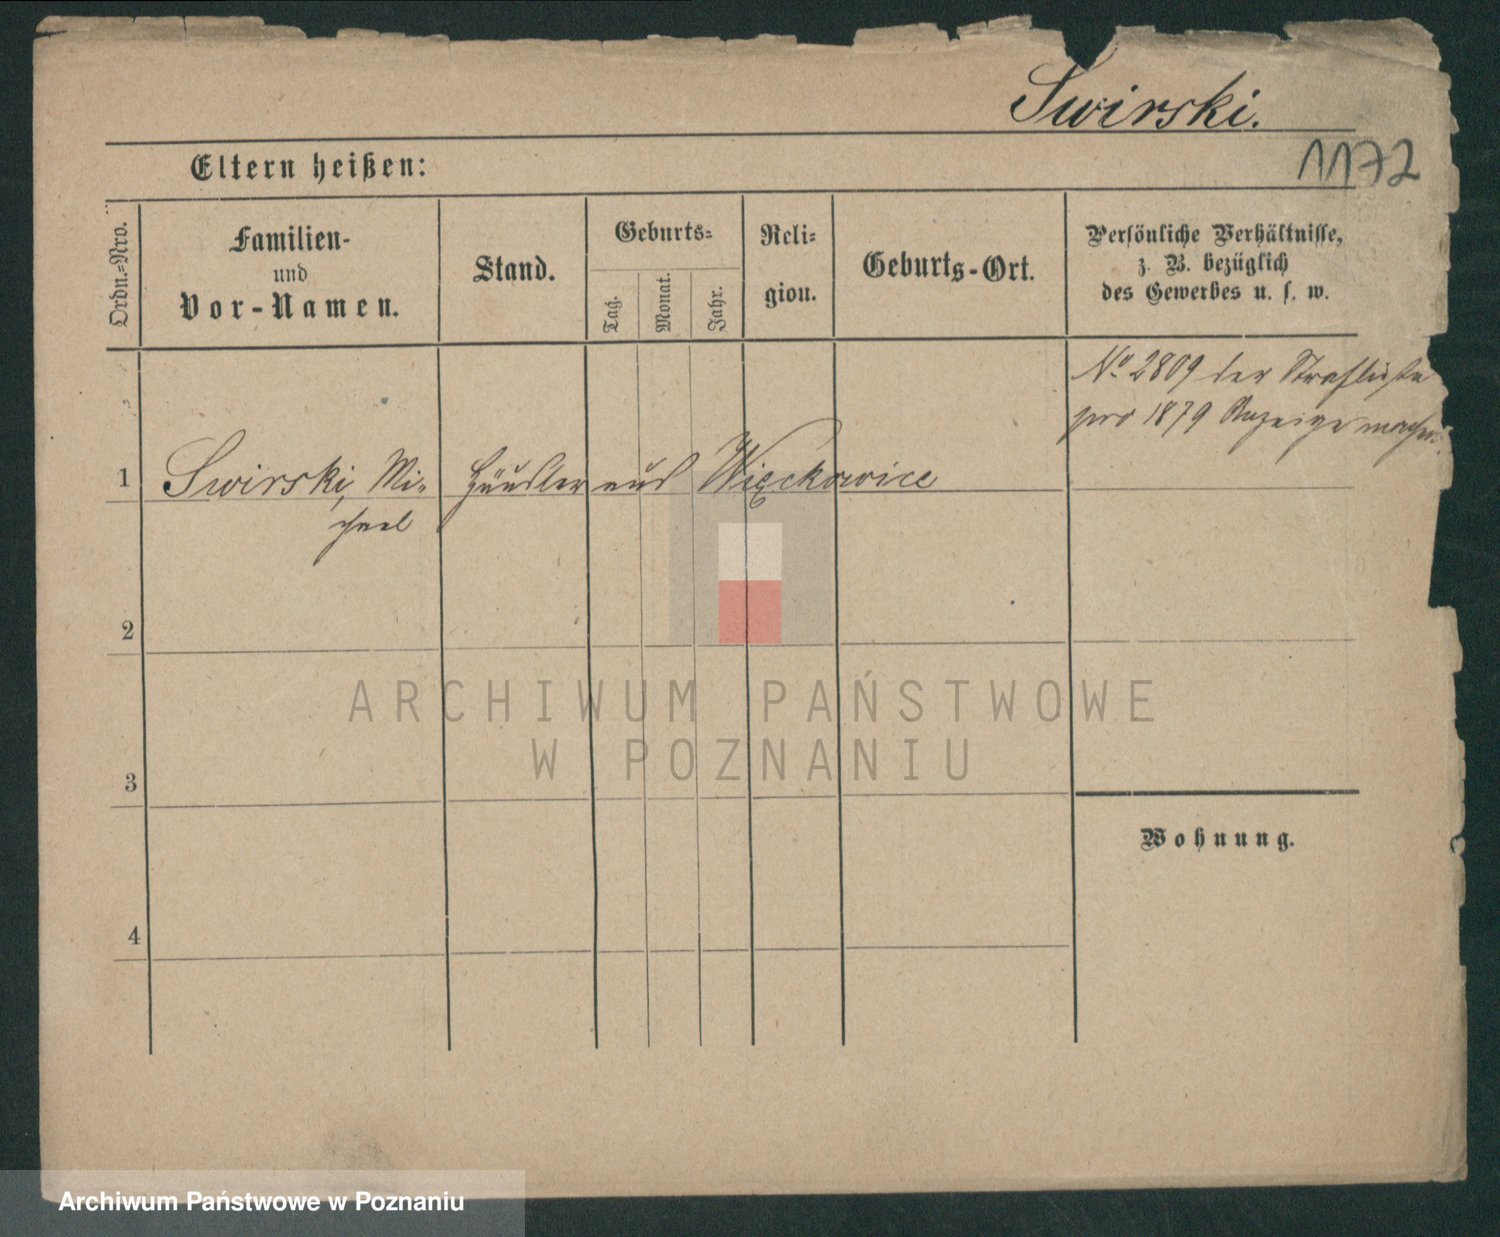 Swirski.
1172
Eltern heißen:
Ordn.=Nro.
Familien-
und
Vor-Namen.
Stand.
Geburts=
Tag.
Monat.
Jahr.
Reli=
gion.
Geburts-Ort.
Persönliche Verhältnisse,
z. B. bezüglich
des Gewerbes u. s. w.
No 2809 der Strafliste
pro 1879 Anzeige machen.
1 Swirski, Mi-
chael
Händler aus Więckowice
2
3
4
Wohnung.
ARCHIWUM PAŃSTWOWE
W POZNANIU
Archiwum Państwowe w Poznaniu